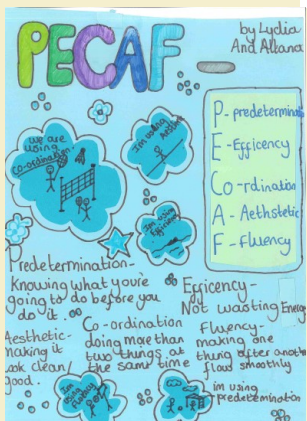 PECAF
by Lydia
And Alkana
P - predetermination
E - Efficency
Co - rdination
A - Aethstetic
F - fluency
we are
using
co-ordination
I'm using
I'm using
Predetermination-
Knowing what you're
going to do before you
do it.
Efficency-
Not wasting Energy
Aesthetic-
making it
look clean/
good.
Co-ordination
doing more than
two things at
the same time
Fluency-
making one
thing after another
flow smoothly
I'm
using
Fluency
im using
predetermination